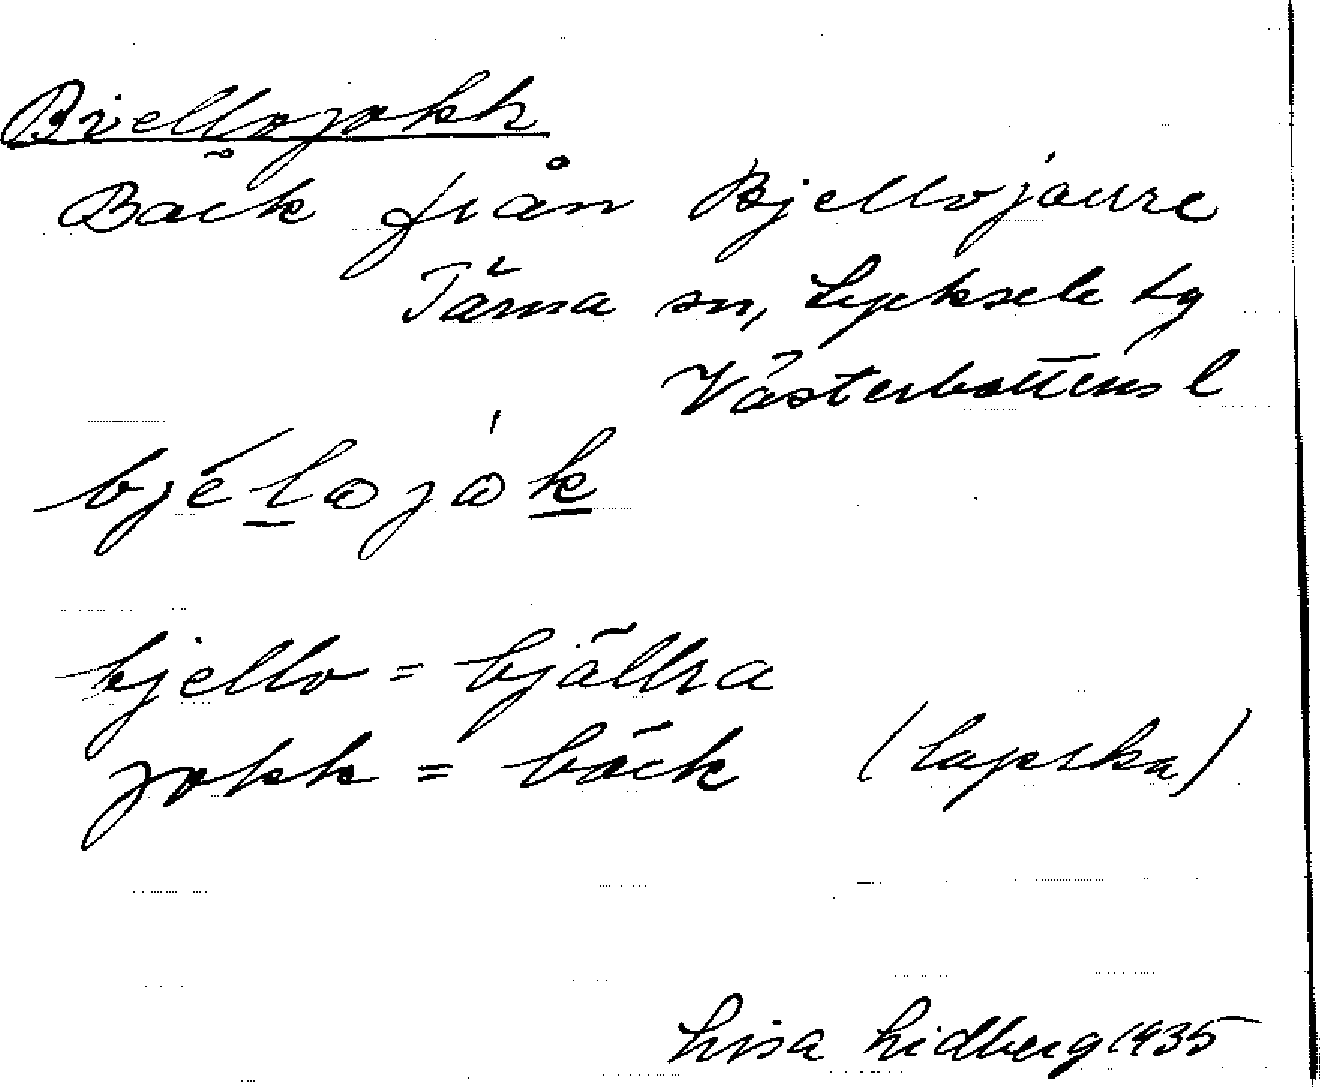 Biellojokk
Bäck från Bjellojaure
Tärna sn, Lycksele lg
Västerbottens l
bjélojók
bjello = bjällra
jokk = bäck (lapska)
Lisa Lidberg 1935